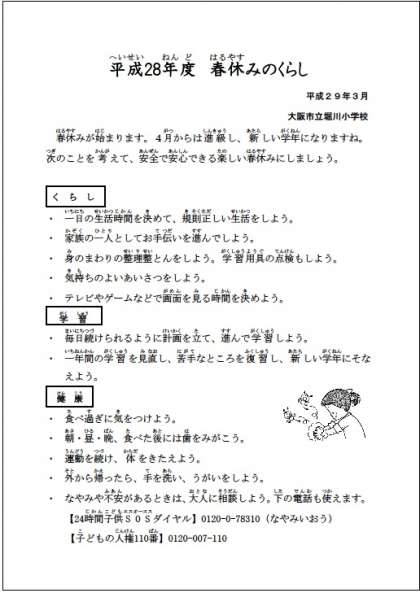 平成28年度　春休みのくらし
平成２９年３月
大阪市立堀川小学校
春休みが始まります。４月からは進級し、新しい学年になりますね。
次のことを考えて、安全で安心できる楽しい春休みにしましょう。
くらし
・ 一日の生活時間を決めて、規則正しい生活をしよう。
・ 家族の一人としてお手伝いを進んでしよう。
・ 身のまわりの整理整とんをしよう。学習用具の点検もしよう。
・ 気持ちのよいあいさつをしよう。
・ テレビやゲームなどで画面を見る時間を決めよう。
学習
・ 毎日続けられるように計画を立て、進んで学習しよう。
・ 一年間の学習を見直し、苦手なところを復習し、新しい学年にそな
えよう。
健康
・ 食べ過ぎに気をつけよう。
・ 朝・昼・晩、食べた後には歯をみがこう。
・ 運動を続け、体をきたえよう。
・ 外から帰ったら、手を洗い、うがいをしよう。
・ なやみや不安があるときは、大人に相談しよう。下の電話も使えます。
【24時間子供ＳＯＳダイヤル】0120-0-78310（なやみいおう）
【子どもの人権110番】0120-007-110